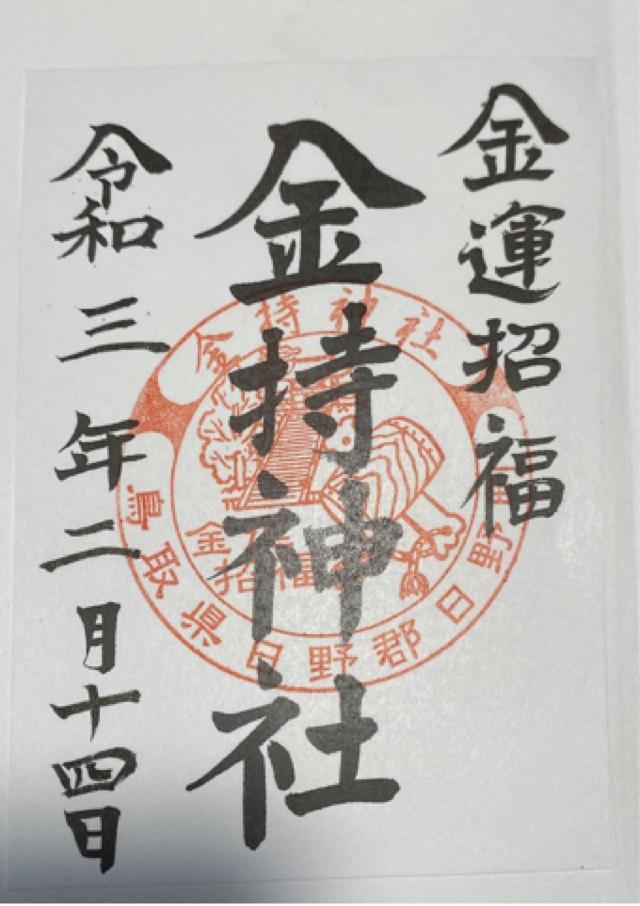 金運招福
金持神社
令和三年二月十四日
金持神社
鳥取県日野郡日野
招福